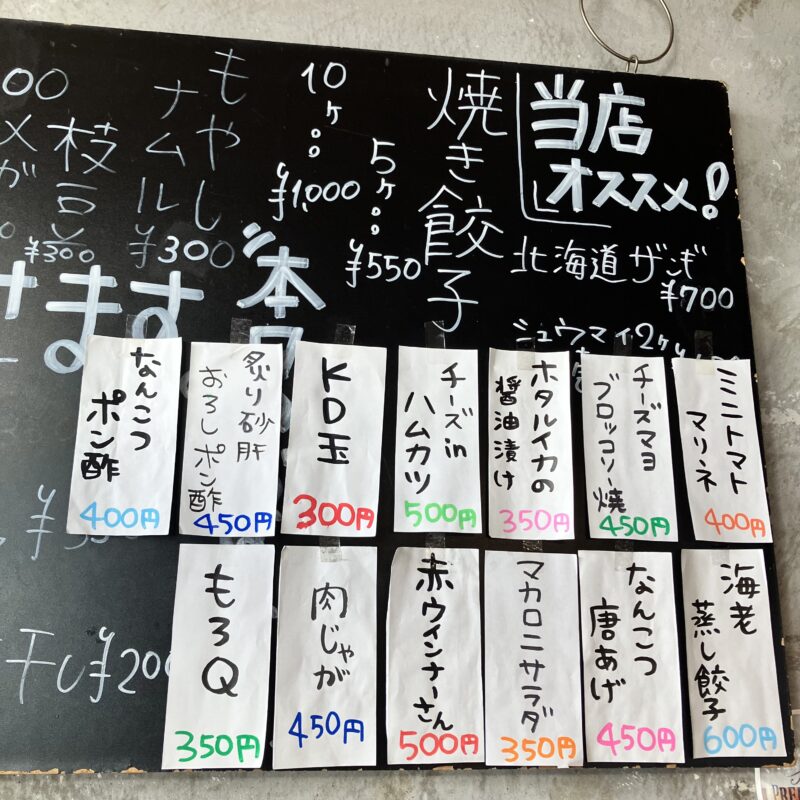 当店
オススメ!
北海道ザンギ
¥700
シュウマイ2ヶ
焼き餃子
5ヶ。。
¥550
10ヶ。。
¥1,000
もやし
ナムル
¥300
枝豆
¥300
00
メが
ます
本
干し¥200
ミニトマト
マリネ
400円
チーズマヨ
ブロッコリー焼
450円
ホタルイカの
醤油漬け
350円
チーズin
ハムカツ
500円
KD玉
300円
炙り砂肝
おろしポン酢
450円
なんこつ
ポン酢
400円
海老
蒸し餃子
600円
なんこつ
唐あげ
450円
マカロニサラダ
350円
赤ウインナーさん
500円
肉じゃが
450円
もろQ
350円